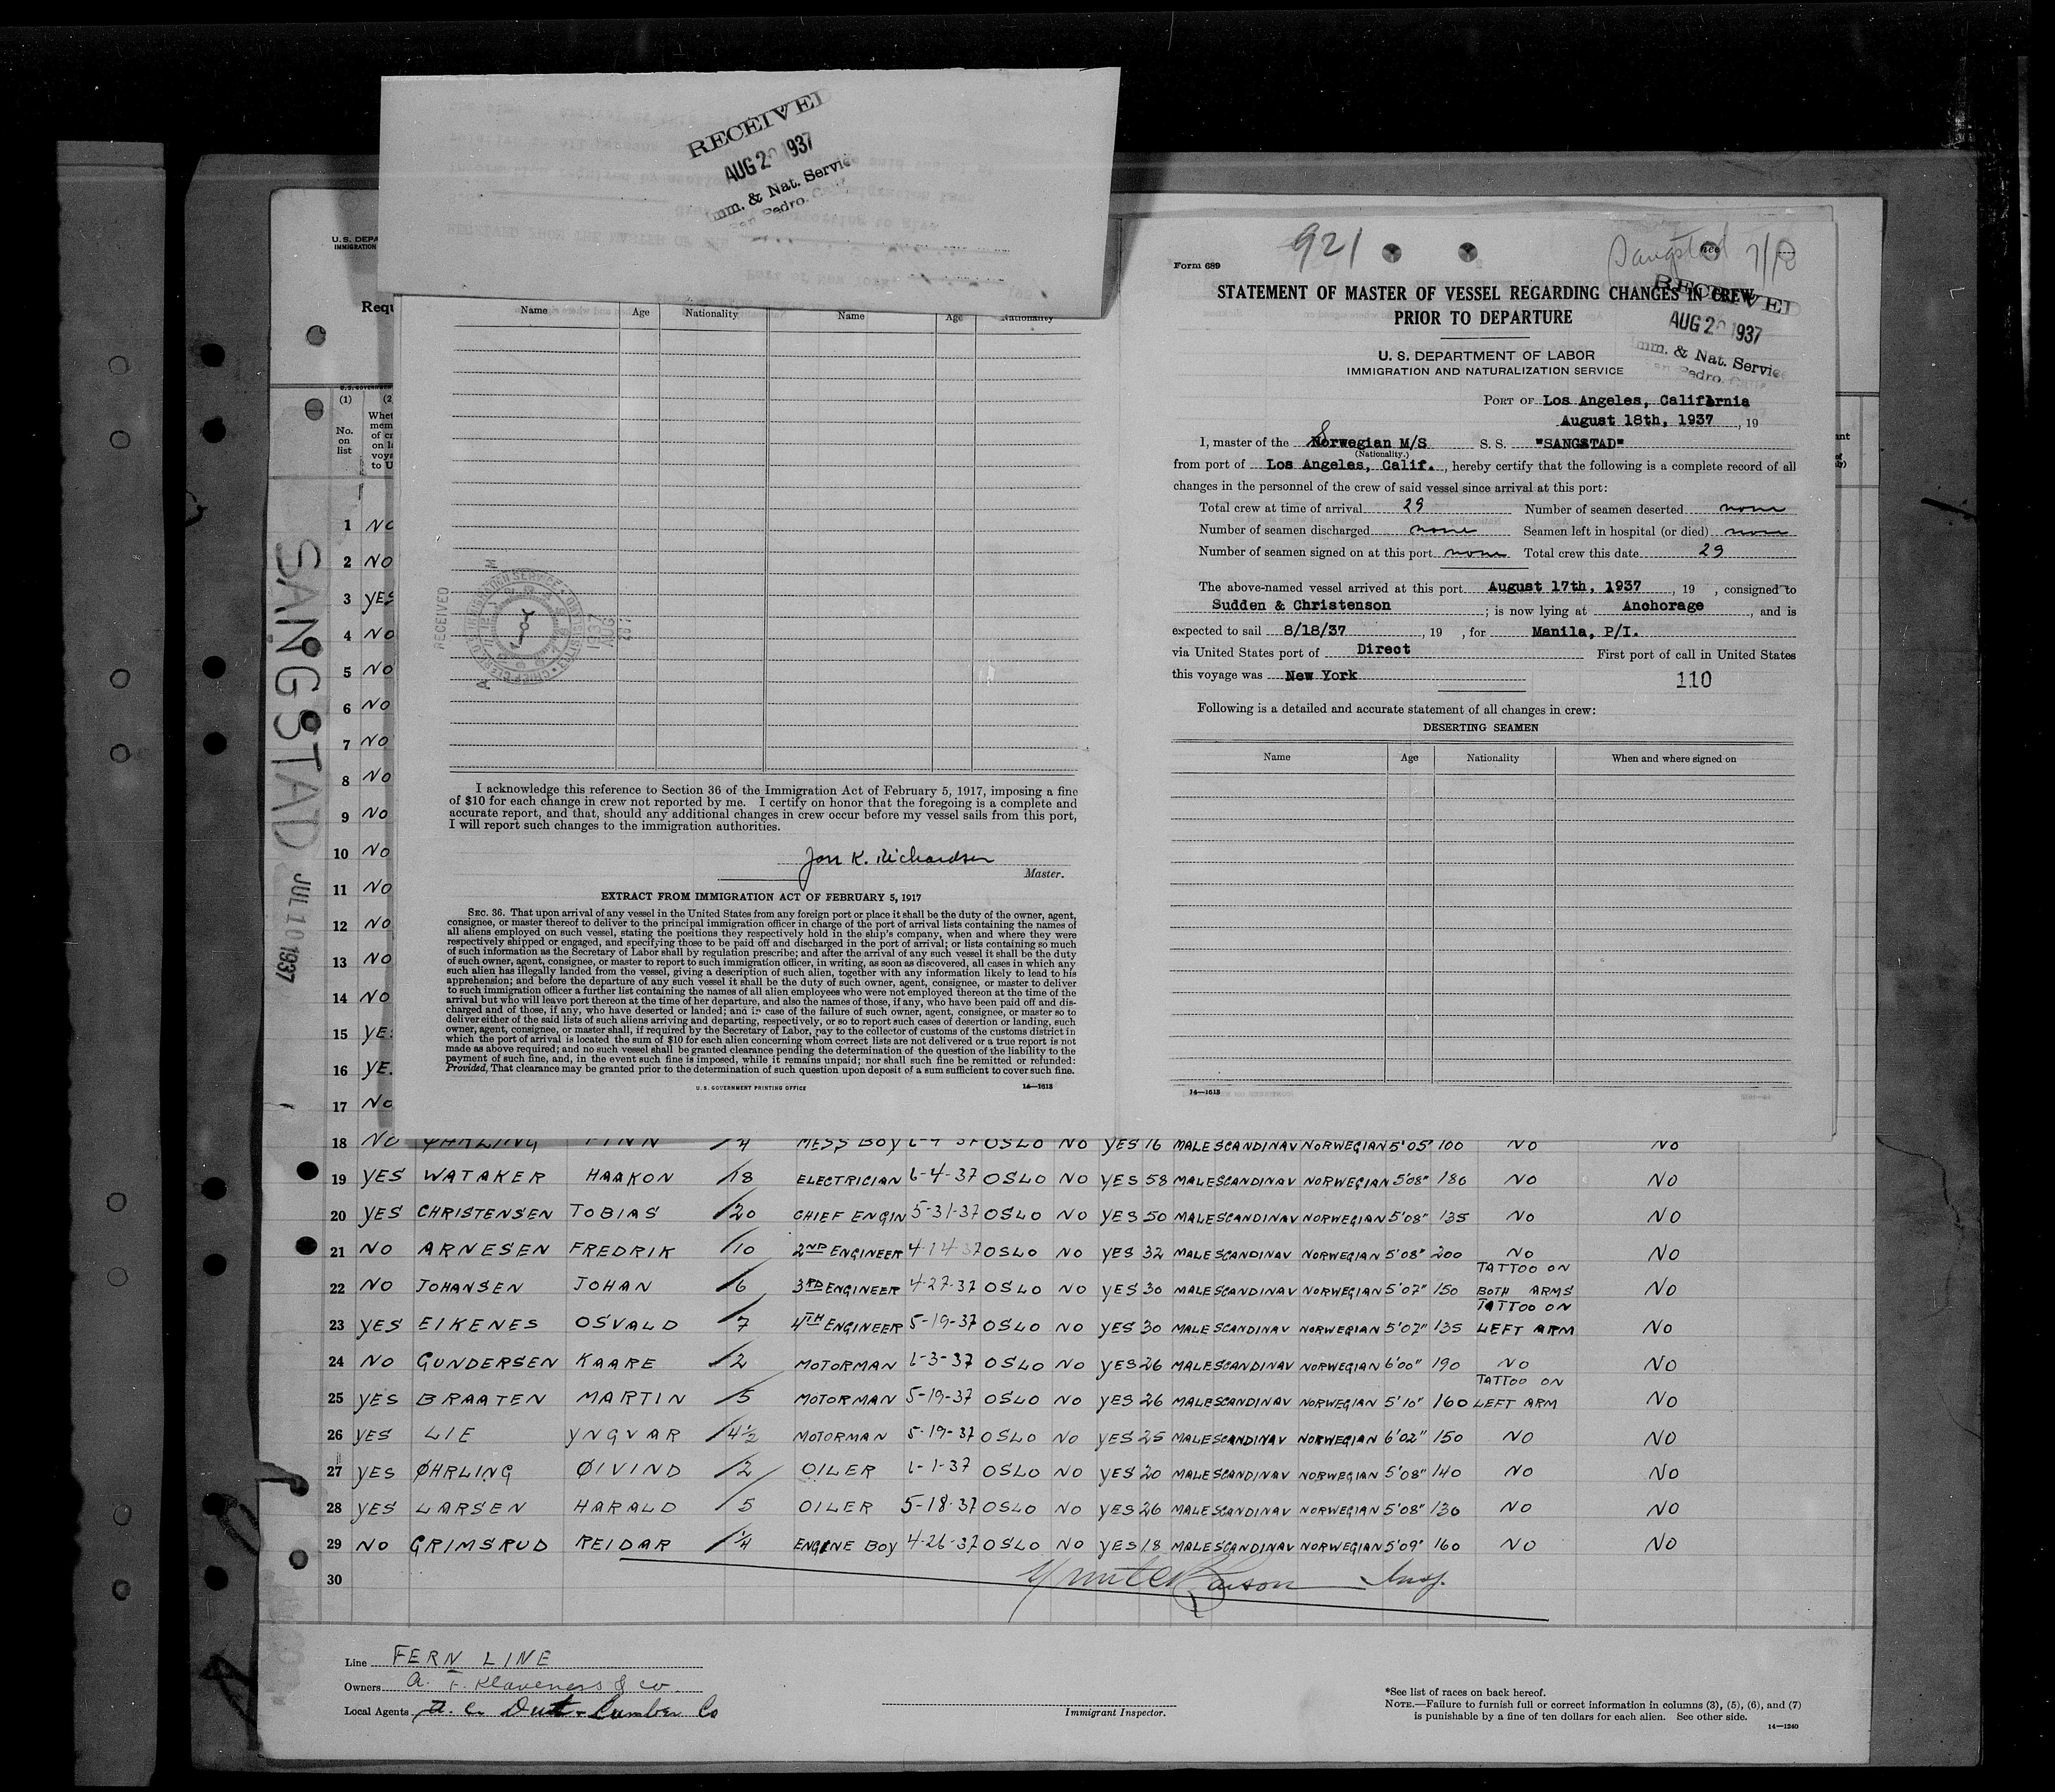 RECEIVED
AUG 20 1937
Imm. & Nat. Service
San Pedro, Calif.
U.S. DEPA
IMMIGRATION
Requ
Name Age Nationality Name Age Nationality
RECEIVED
I acknowledge this reference to Section 36 of the Immigration Act of February 5, 1917, imposing a fine
of $10 for each change in crew not reported by me. I certify on honor that the foregoing is a complete and
accurate report, and that, should any additional changes in crew occur before my vessel sails from this port,
I will report such changes to the immigration authorities.
Jon K. Richardsen
Master.
EXTRACT FROM IMMIGRATION ACT OF FEBRUARY 5, 1917
SEC. 36. That upon arrival of any vessel in the United States from any foreign port or place it shall be the duty of the owner, agent,
consignee, or master thereof to deliver to the principal immigration officer in charge of the port of arrival lists containing the names of
all aliens employed on such vessel, stating the positions they respectively hold in the ship's company, when and where they were
respectively shipped or engaged, and specifying those to be paid off and discharged in the port of arrival; or lists containing so much
of such information as the Secretary of Labor shall by regulation prescribe; and after the arrival of any such vessel it shall be the duty
of such owner, agent, consignee, or master to report to such immigration officer, in writing, as soon as discovered, all cases in which any
such alien has illegally landed from the vessel, giving a description of such alien, together with any information likely to lead to his
apprehension; and before the departure of any such vessel it shall be the duty of such owner, agent, consignee, or master to deliver
to such immigration officer a further list containing the names of all alien employees who were not employed thereon at the time of the
arrival but who will leave port thereon at the time of her departure, and also the names of those, if any, who have been paid off and dis-
charged and of those, if any, who have deserted or landed; and in case of the failure of such owner, agent, consignee, or master so to
deliver either of the said lists of such aliens arriving and departing, respectively, or so to report such cases of desertion or landing, such
owner, agent, consignee, or master shall, if required by the Secretary of Labor, pay to the collector of customs of the customs district in
which the port of arrival is located the sum of $10 for each alien concerning whom correct lists are not delivered or a true report is not
made as above required; and no such vessel shall be granted clearance pending the determination of the question of the liability to the
payment of such fine, and, in the event such fine is imposed, while it remains unpaid; nor shall such fine be remitted or refunded:
Provided, That clearance may be granted prior to the determination of such question upon deposit of a sum sufficient to cover such fine.
U. S. GOVERNMENT PRINTING OFFICE 14—1613
921 Sangstad 7/10
Form 689
STATEMENT OF MASTER OF VESSEL REGARDING CHANGES IN CREW
PRIOR TO DEPARTURE
RECEIVED
AUG 20 1937
Imm. & Nat. Service
San Pedro, Calif.
U. S. DEPARTMENT OF LABOR
IMMIGRATION AND NATURALIZATION SERVICE
PORT OF Los Angeles, California
August 18th, 1937, 19
I, master of the Norwegian M/S S. S. "SANGSTAD"
(Nationality.)
from port of Los Angeles, Calif., hereby certify that the following is a complete record of all
changes in the personnel of the crew of said vessel since arrival at this port:
Total crew at time of arrival 29 Number of seamen deserted none
Number of seamen discharged none Seamen left in hospital (or died) none
Number of seamen signed on at this port none Total crew this date 29
The above-named vessel arrived at this port August 17th, 1937, 19 , consigned to
Sudden & Christenson; is now lying at Anchorage, and is
expected to sail 8/18/37, 19 , for Manila, P/I.
via United States port of Direct First port of call in United States
this voyage was New York 110
Following is a detailed and accurate statement of all changes in crew:
DESERTING SEAMEN
Name Age Nationality When and where signed on
14—1613
SANGSTAD JUL 10 1937
(1) (2
No. on list
Whet
mem
of cr
on l
voya
to U
1 NO
2 NO
3 YES
4 NO
5 NO
6 NO
7 NO
8 NO
9 NO
10 NO
11 NO
12 NO
13 NO
14 NO
15 YE
16 YE
17 NO
18 NO ØHRLING FINN 1/4 MESS BOY 6-4-37 OSLO NO YES 16 MALE SCANDINAV NORWEGIAN 5'05" 100 NO NO
19 YES WATAKER HAAKON 18 ELECTRICIAN 6-4-37 OSLO NO YES 58 MALE SCANDINAV NORWEGIAN 5'08" 186 NO NO
20 YES CHRISTENSEN TOBIAS 20 CHIEF ENGIN 5-31-37 OSLO NO YES 50 MALE SCANDINAV NORWEGIAN 5'08" 135 NO NO
21 NO ARNESEN FREDRIK 10 2ND ENGINEER 4-14-37 OSLO NO YES 32 MALE SCANDINAV NORWEGIAN 5'08" 200 NO NO
22 NO JOHANSEN JOHAN 6 3RD ENGINEER 4-27-37 OSLO NO YES 30 MALE SCANDINAV NORWEGIAN 5'07" 150 TATTOO ON BOTH ARMS NO
23 YES EIKENES OSVALD 7 4TH ENGINEER 5-19-37 OSLO NO YES 30 MALE SCANDINAV NORWEGIAN 5'07" 135 TATTOO ON LEFT ARM NO
24 NO GUNDERSEN KAARE 2 MOTORMAN 6-3-37 OSLO NO YES 26 MALE SCANDINAV NORWEGIAN 6'00" 190 NO NO
25 YES BRAATEN MARTIN 5 MOTORMAN 5-19-37 OSLO NO YES 26 MALE SCANDINAV NORWEGIAN 5'10" 160 TATTOO ON LEFT ARM NO
26 YES LIE YNGVAR 4½ MOTORMAN 5-19-37 OSLO NO YES 25 MALE SCANDINAV NORWEGIAN 6'02" 150 NO NO
27 YES ØHRLING ØIVIND 2 OILER 6-1-37 OSLO NO YES 20 MALE SCANDINAV NORWEGIAN 5'08" 140 NO NO
28 YES LARSEN HARALD 5 OILER 5-18-37 OSLO NO YES 26 MALE SCANDINAV NORWEGIAN 5'08" 130 NO NO
29 NO GRIMSRUD REIDAR 1/4 ENGINE BOY 4-26-37 OSLO NO YES 18 MALE SCANDINAV NORWEGIAN 5'09" 160 NO NO
30 Insp.
Line FERN LINE
Owners A. F. Klaveness & Co.
Local Agents A. C. Dutton Lumber Co
Immigrant Inspector.
*See list of races on back hereof.
NOTE.—Failure to furnish full or correct information in columns (3), (5), (6), and (7)
is punishable by a fine of ten dollars for each alien. See other side.
14—1240